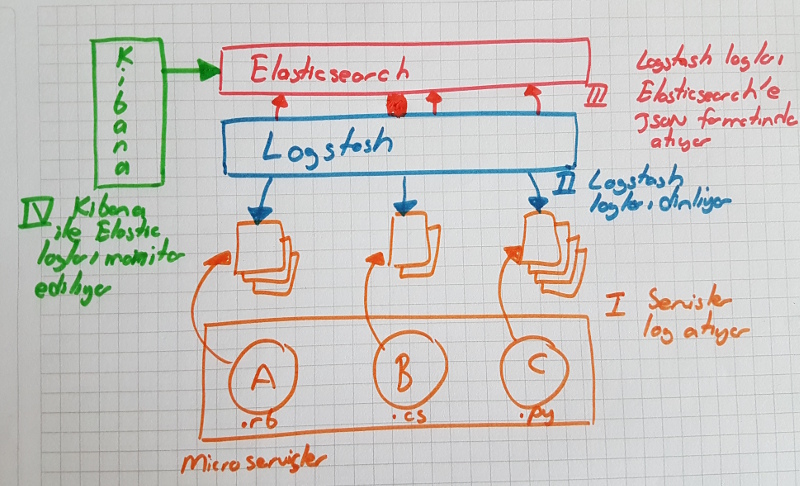 Kibana
Elasticsearch
III
Logstash logları
Elasticsearch'e
JSON formatında
atıyor
Logstash
II Logstash
logları dinliyor
IV Kibana
ile Elastic
logları monitor
ediliyor
I Servisler
log atıyor
A
B
C
.rb
.cs
.py
Microservisler